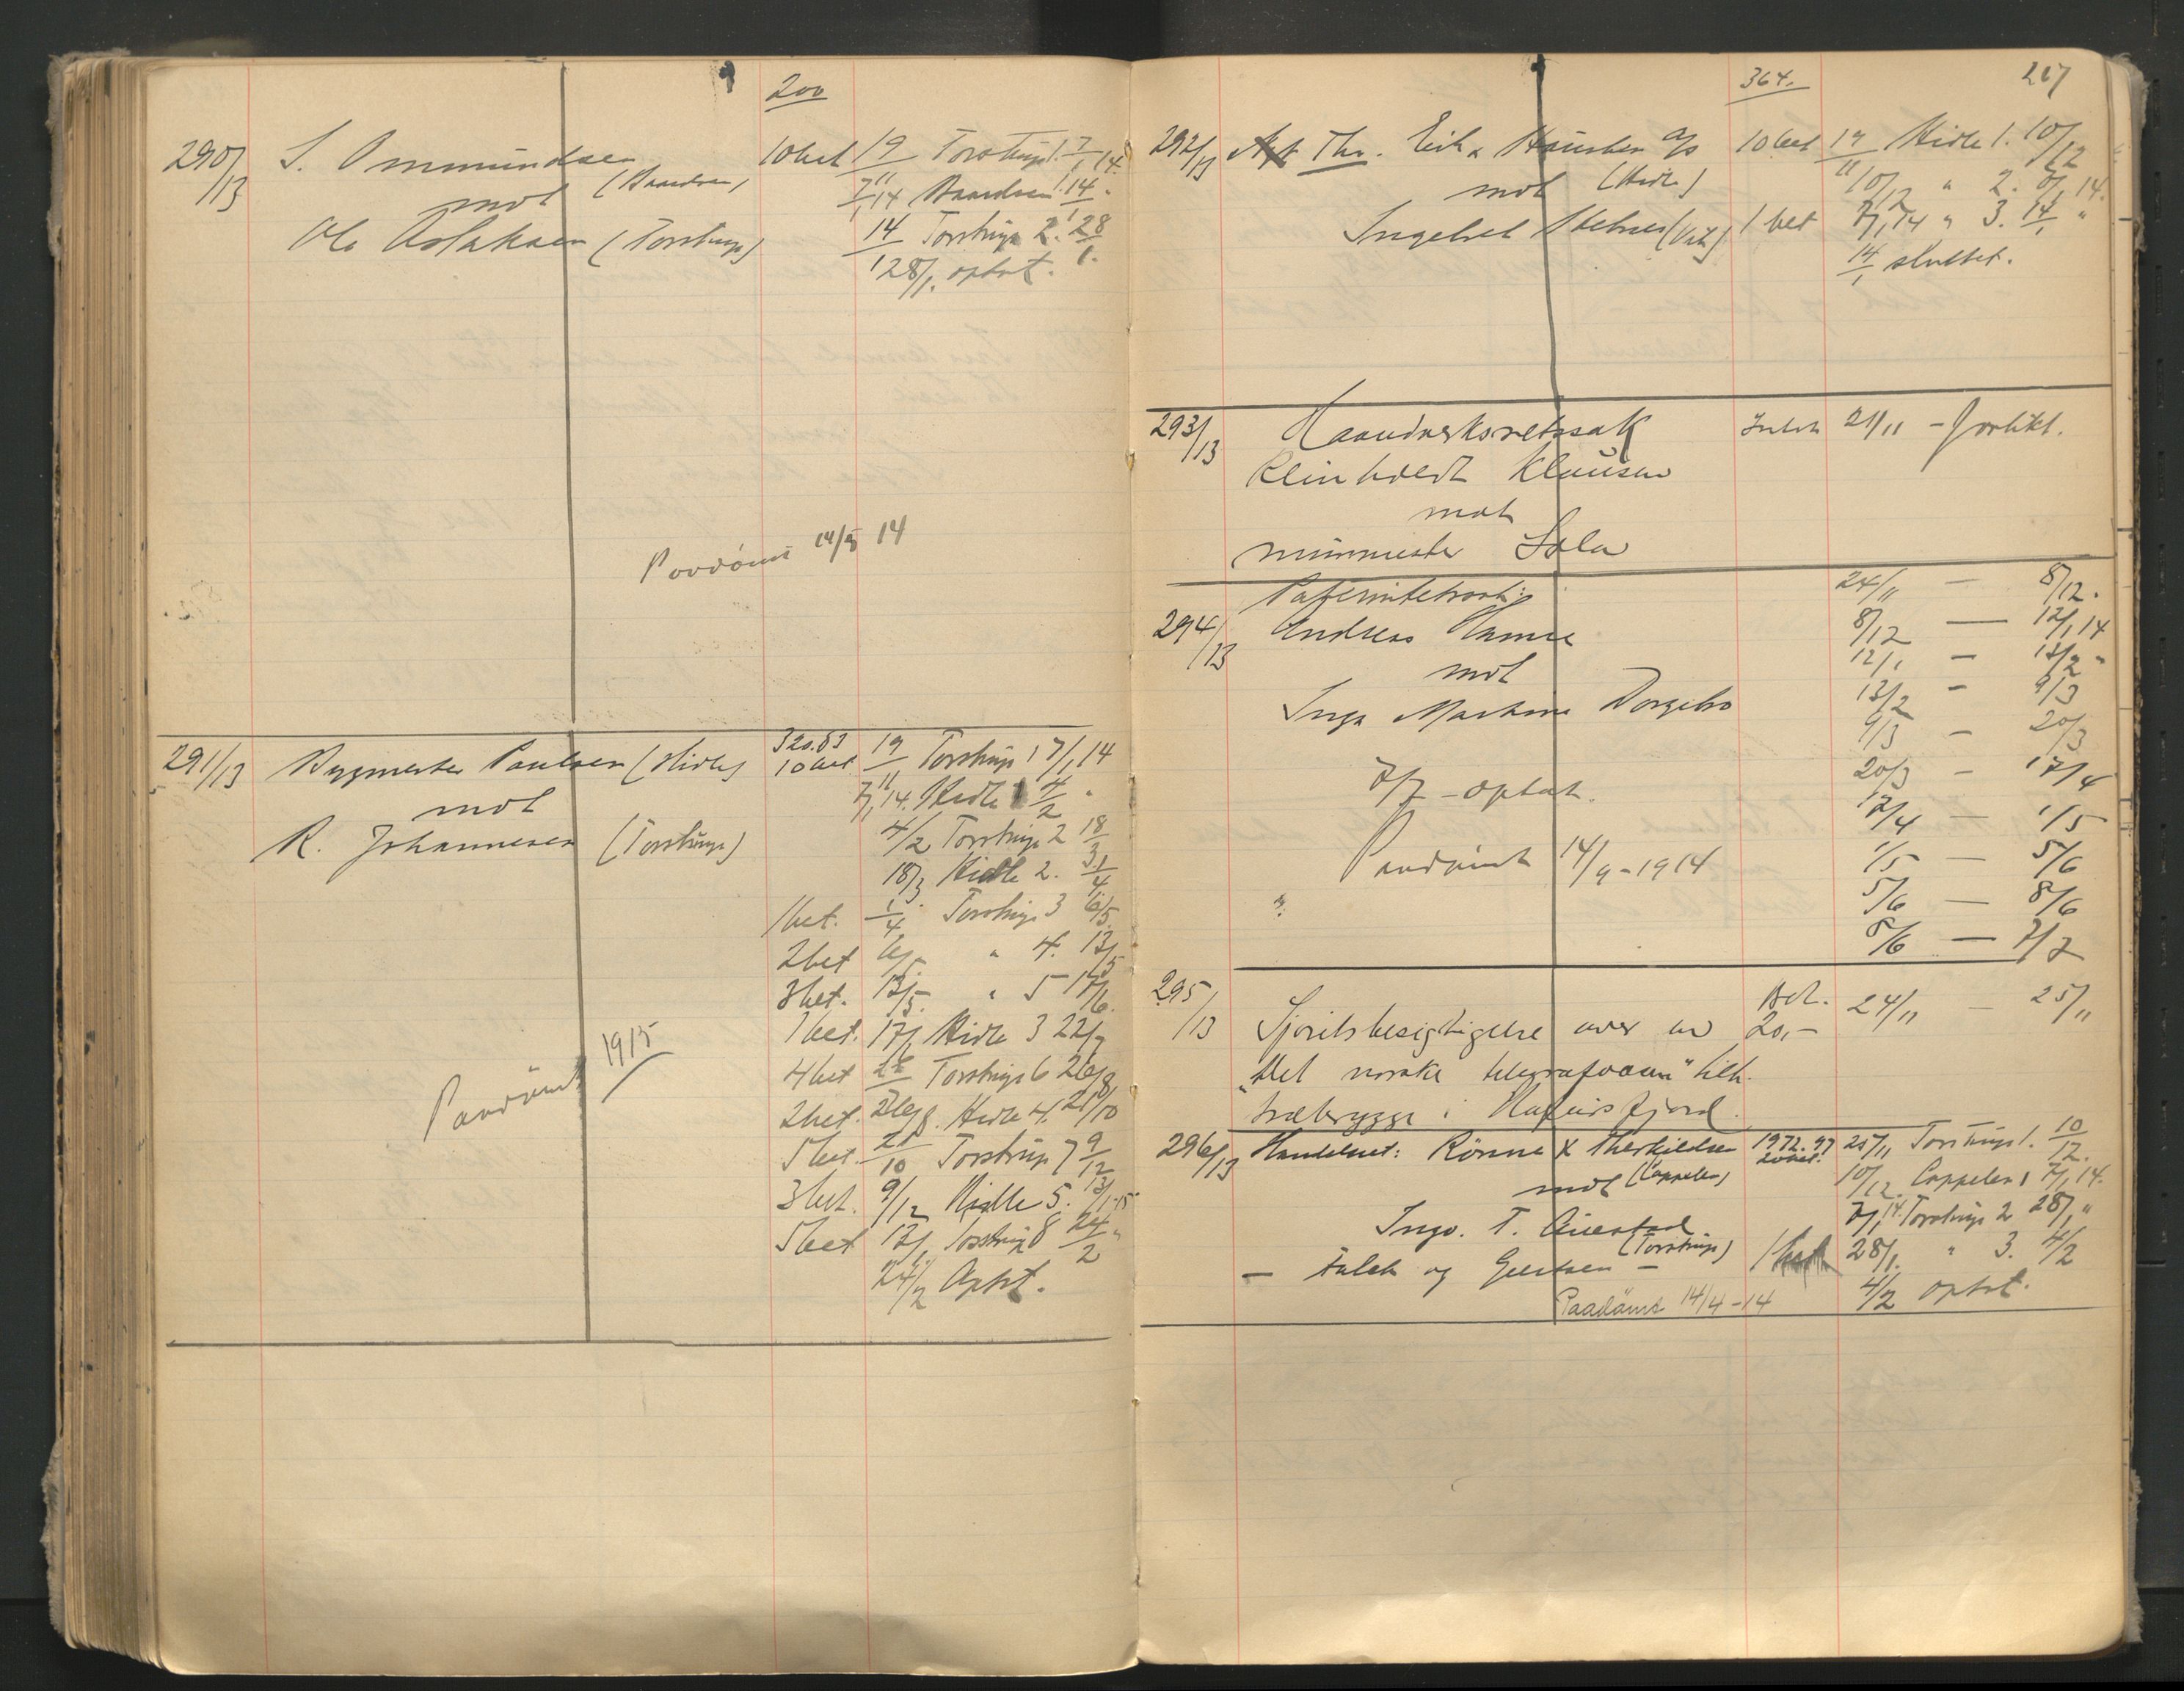 200
290/13 S. Ommundsen 10 bet 19/11 Torstrup 1. 7/1 14.
mot (Baardsen) 7/1 14 Baardsen 1. 14/1 "
Ole Aslaksen (Torstrup) 14/1 Torstrup 2. 28/1.
28/1. optat.
Paadömt 14/5 14
291/13 Bygmester Paulsen (Hidle) 320.83 10 bet 19/11 Torstrup 1 7/1 14
mot 7/1 14. Hidle 1 4/2 "
R. Johannesen (Torstrup) 4/2 Torstrup 2 18/3
18/3. Hidle 2. 1/4
1 bet. 1/4 Torstrup 3 6/5.
2 bet 6/5 " 4. 13/5
3 bet. 13/5. " 5 17/6.
1 bet. 17/6 Hidle 3 22/7
4 bet 22/7 Torstrup 6 26/8
2 bet. 26/8. Hidle 4. 21/10
5 bet 21/10 Torstrup 7 9/12
3 bet. 9/12 Hidle 5. 13/1-15
5 bet 13/1 Torstrup 8 24/2 "
24/2 Optat.
Paadömt 1915
364.
217
292/13 Thv. Eick & Hausken A/S 10 bet 19/11 Hidle 1. 10/12
mot (Hidle) 10/12 " 2. 7/1 14.
Ingebret 1 bet 7/1 14 " 3. 14/1 "
14/1 sluttet.
293/13 Haandverksretssak 21/11 - forlikt.
Reinholdt Klausen
mot
murmester Sola
Paternitetssak: 24/11 — 8/12.
294/13 Andreas Hamre 8/12 — 12/1 14
mot 12/1 — 13/2 "
Inga Martine 13/2 — 9/3
9/3 — 20/3
7/7 - optat. 20/3 — 17/4
17/4 — 1/5
Paadömt 14/9 - 1914 1/5 — 5/6
5/6 — 8/6
8/6 — 7/7
295/13 Bet. 24/11 — 25/11
Sjöretsbesigtigelse over en 20,-
"Det norske telegrafvæsen" tilh.
træbrygge i Hafursfjord.
296/13 Handelsret: Rönne & Therkildsen 1972.97 20 bet. 25/11 Torstrup 1. 10/12
mot (Cappelen) 10/12. Cappelen 1 7/1 14.
Ingv. T. Auestad 7/1 14. Torstrup 2 28/1 "
(Torstrup)
— Falck og Geertsen — 28/1. " 3. 4/2
Paadömt 14/4 - 14 4/2 optat.